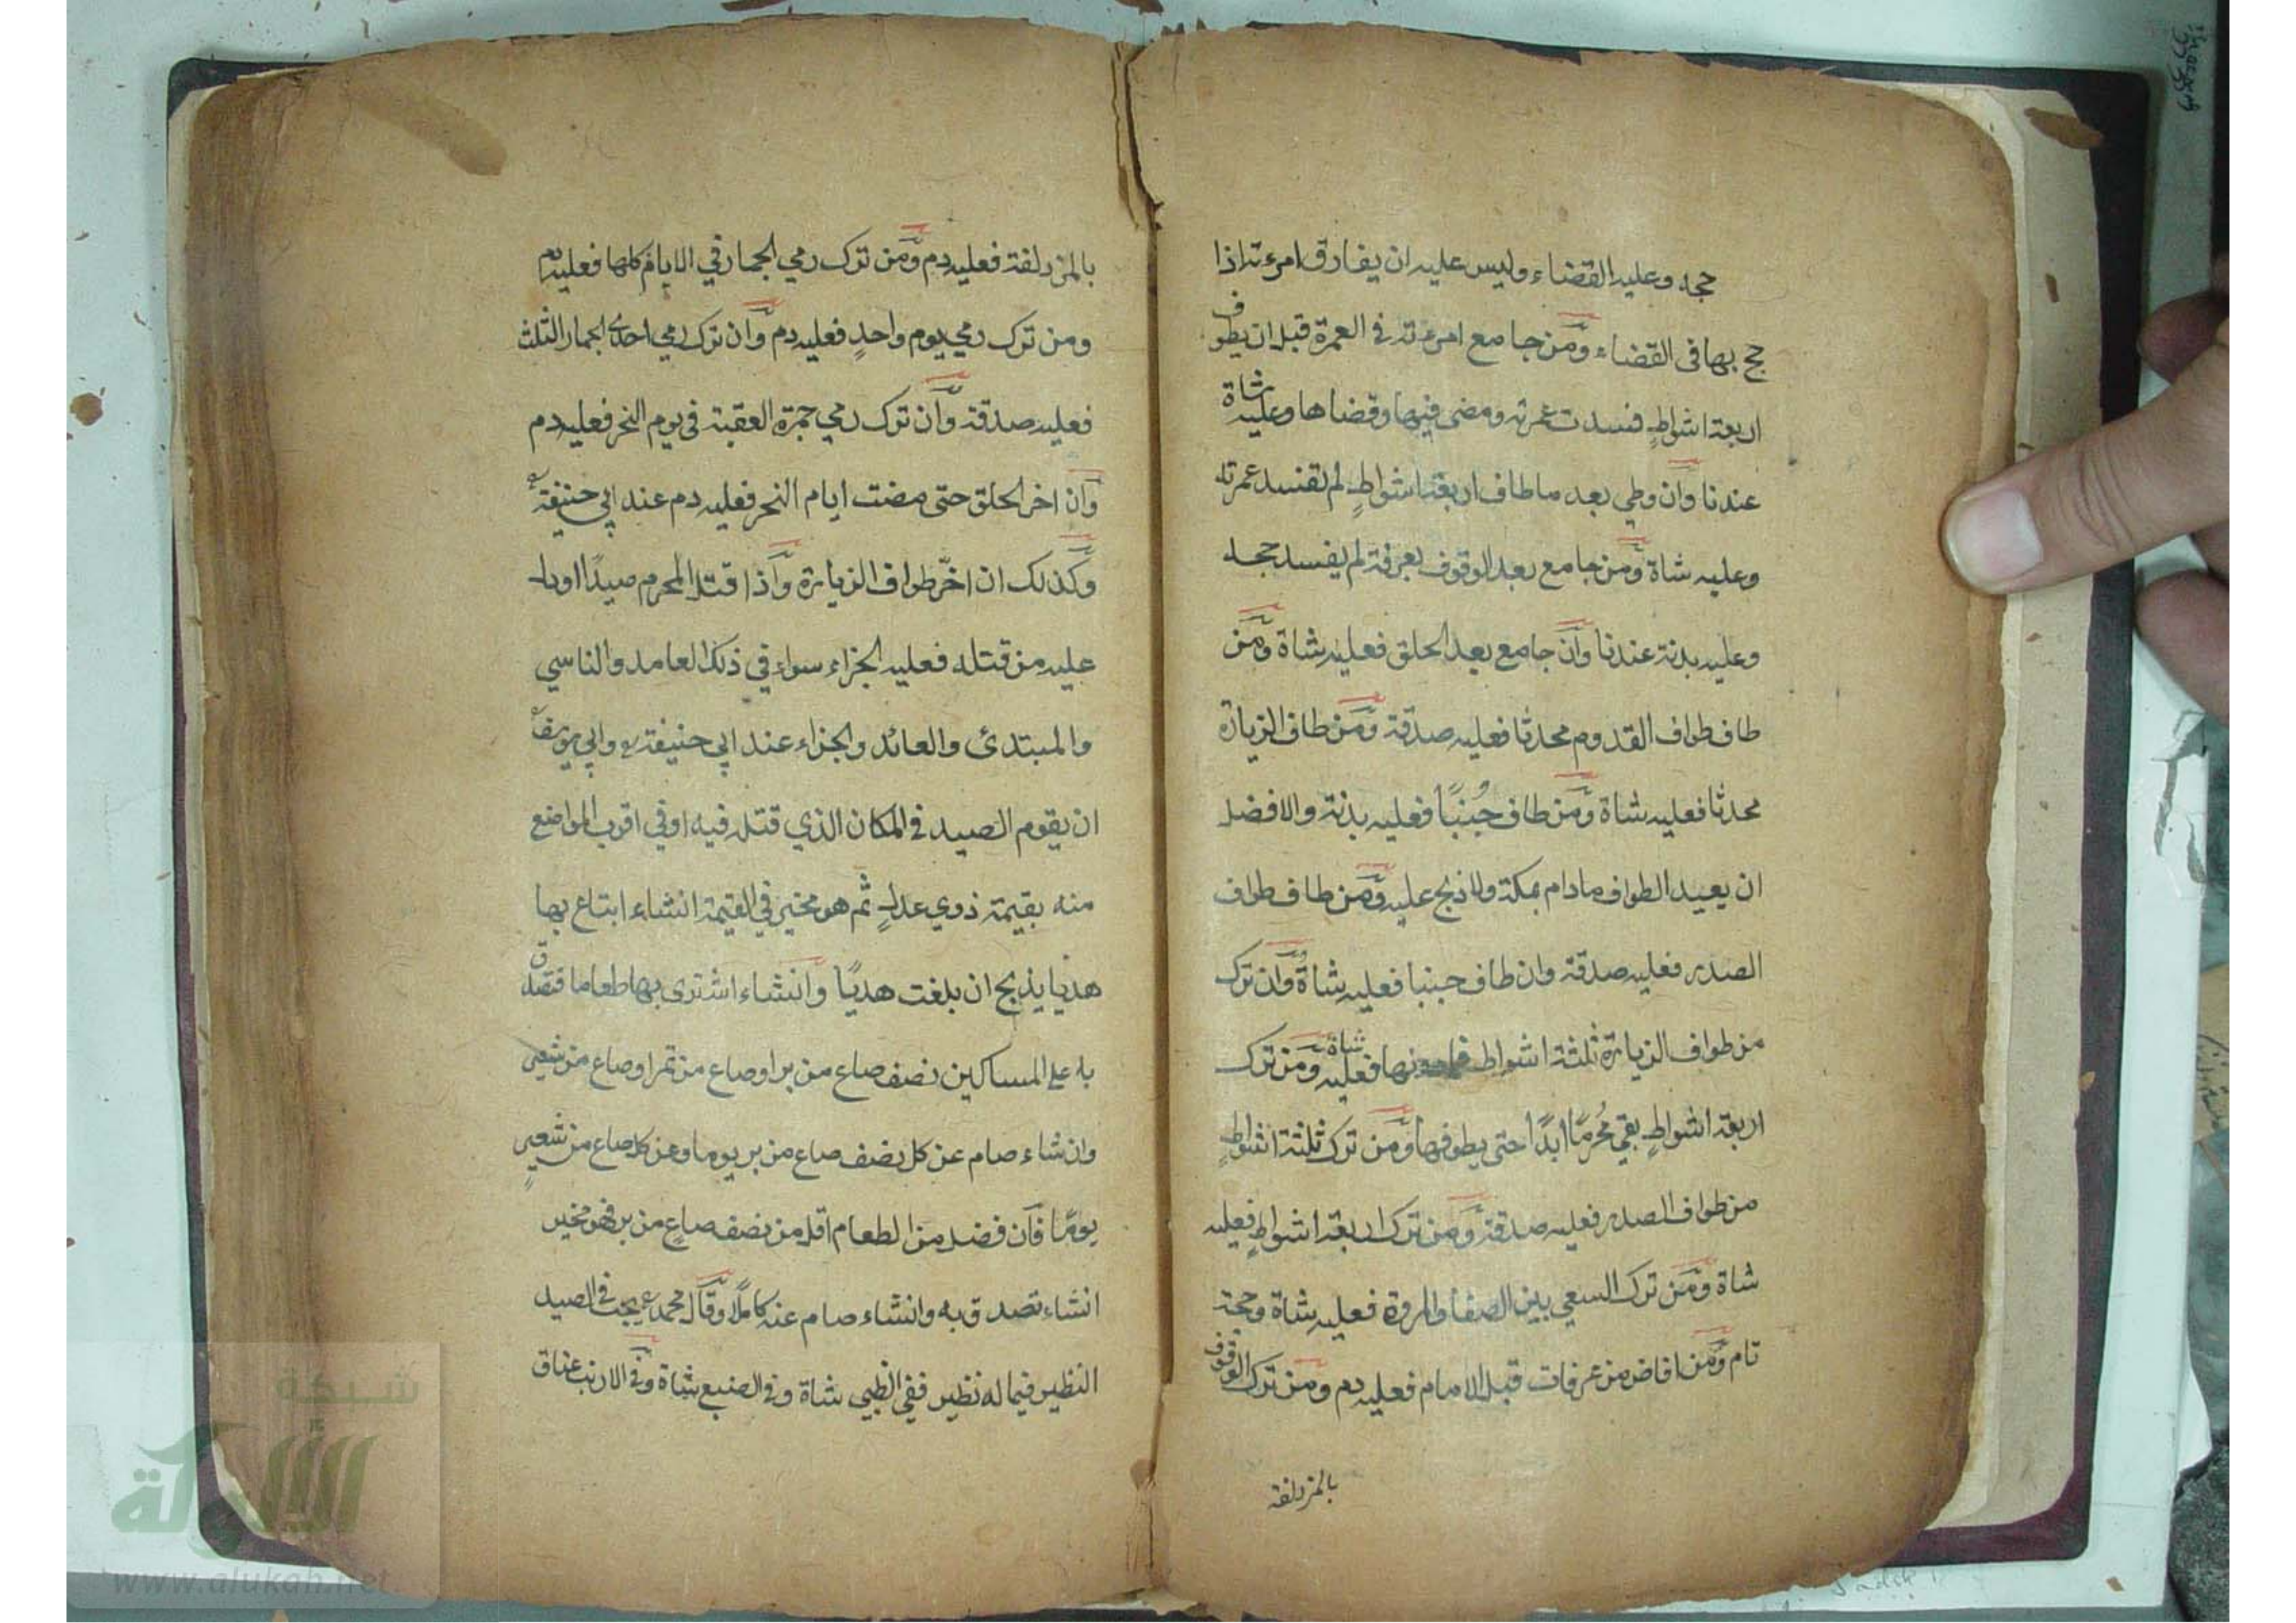 حجه وعليه القضاء وليس عليه ان يفارق امرءته اذا
حج بها فى القضاء ومن جامع امرءته فى العمرة قبل ان يطوف
اربعة اشواطٍ فسدت عمرته ومضى فيها وقضاها وعليه شاة
عندنا وان وطي بعد ما طاف اربعة اشواطٍ لم تفسد عمرته
وعليه شاة ومن جامع بعد الوقوف بعرفة لم يفسد حجه
وعليه بدنة عندنا وان جامع بعد الحلق فعليه شاة ومن
طاف طواف القدوم محدثا فعليه صدقة ومن طاف الزيارة
محدثا فعليه شاة ومن طاف جُنبًا فعليه بدنة والافضل
ان يعيد الطواف مادام بمكة ولا ذبح عليه ومن طاف طواف
الصدر فعليه صدقة وان طاف جنبا فعليه شاة وان ترك
من طواف الزيارة ثلثة اشواط فما دونها فعليه شاة ومن ترك
اربعة اشواطٍ بقي مُحرمًا ابدًا حتى يطوفها ومن ترك ثلثة اشواطٍ
من طواف الصدر فعليه صدقة ومن ترك اربعة اشواطٍ فعليه
شاة ومن ترك السعي بين الصفا والمروة فعليه شاة وحجة
تام ومن افاض من عرفات قبل الامام فعليه دم ومن ترك الوقوف
بالمزدلفة
بالمزدلفة فعليه دم ومن ترك رمي الجمار في الايام كلها فعليه دم
ومن ترك رمي يوم واحدٍ فعليه دم وان ترك رمي احدى الجمار الثلث
فعليه صدقة وان ترك رمي جمرة العقبة فى يوم النحر فعليه دم
وان اخر الحلق حتى مضت ايام النحر فعليه دم عند ابي حنيفة
وكذلك ان اخّر طواف الزيارة واذا قتل المحرم صيدًا او دل
عليه من قتله فعليه الجزاء سواء في ذلك العامد والناسي
والمبتدئ والعائد والجزاء عند ابي حنيفة وابي يوسف
ان يقوم الصيد في المكان الذي قتله فيه او في اقرب المواضع
منه بقيمة ذوي عدلٍ ثم هو مخير في القيمة انشاء ابتاع بها
هديا يذبح ان بلغت هديًا وانشاء اشترى بها طعاما فتصدق
به على المساكين نصف صاع من بر او صاع من تمر او صاع من شعير
وان شاء صام عن كل نصف صاع من بر يوما وعن كل صاع من شعيرٍ
يومًا فان فضل من الطعام اقل من نصف صاعٍ من بر فهو مخير
انشاء تصدق به وانشاء صام عنه كاملًا وقال محمد يجب فى الصيد
النظير فيما له نظير ففي الظبي شاة وفى الضبع شاة وفى الارنب عناق
شبكة
الألوكة
www.alukah.net